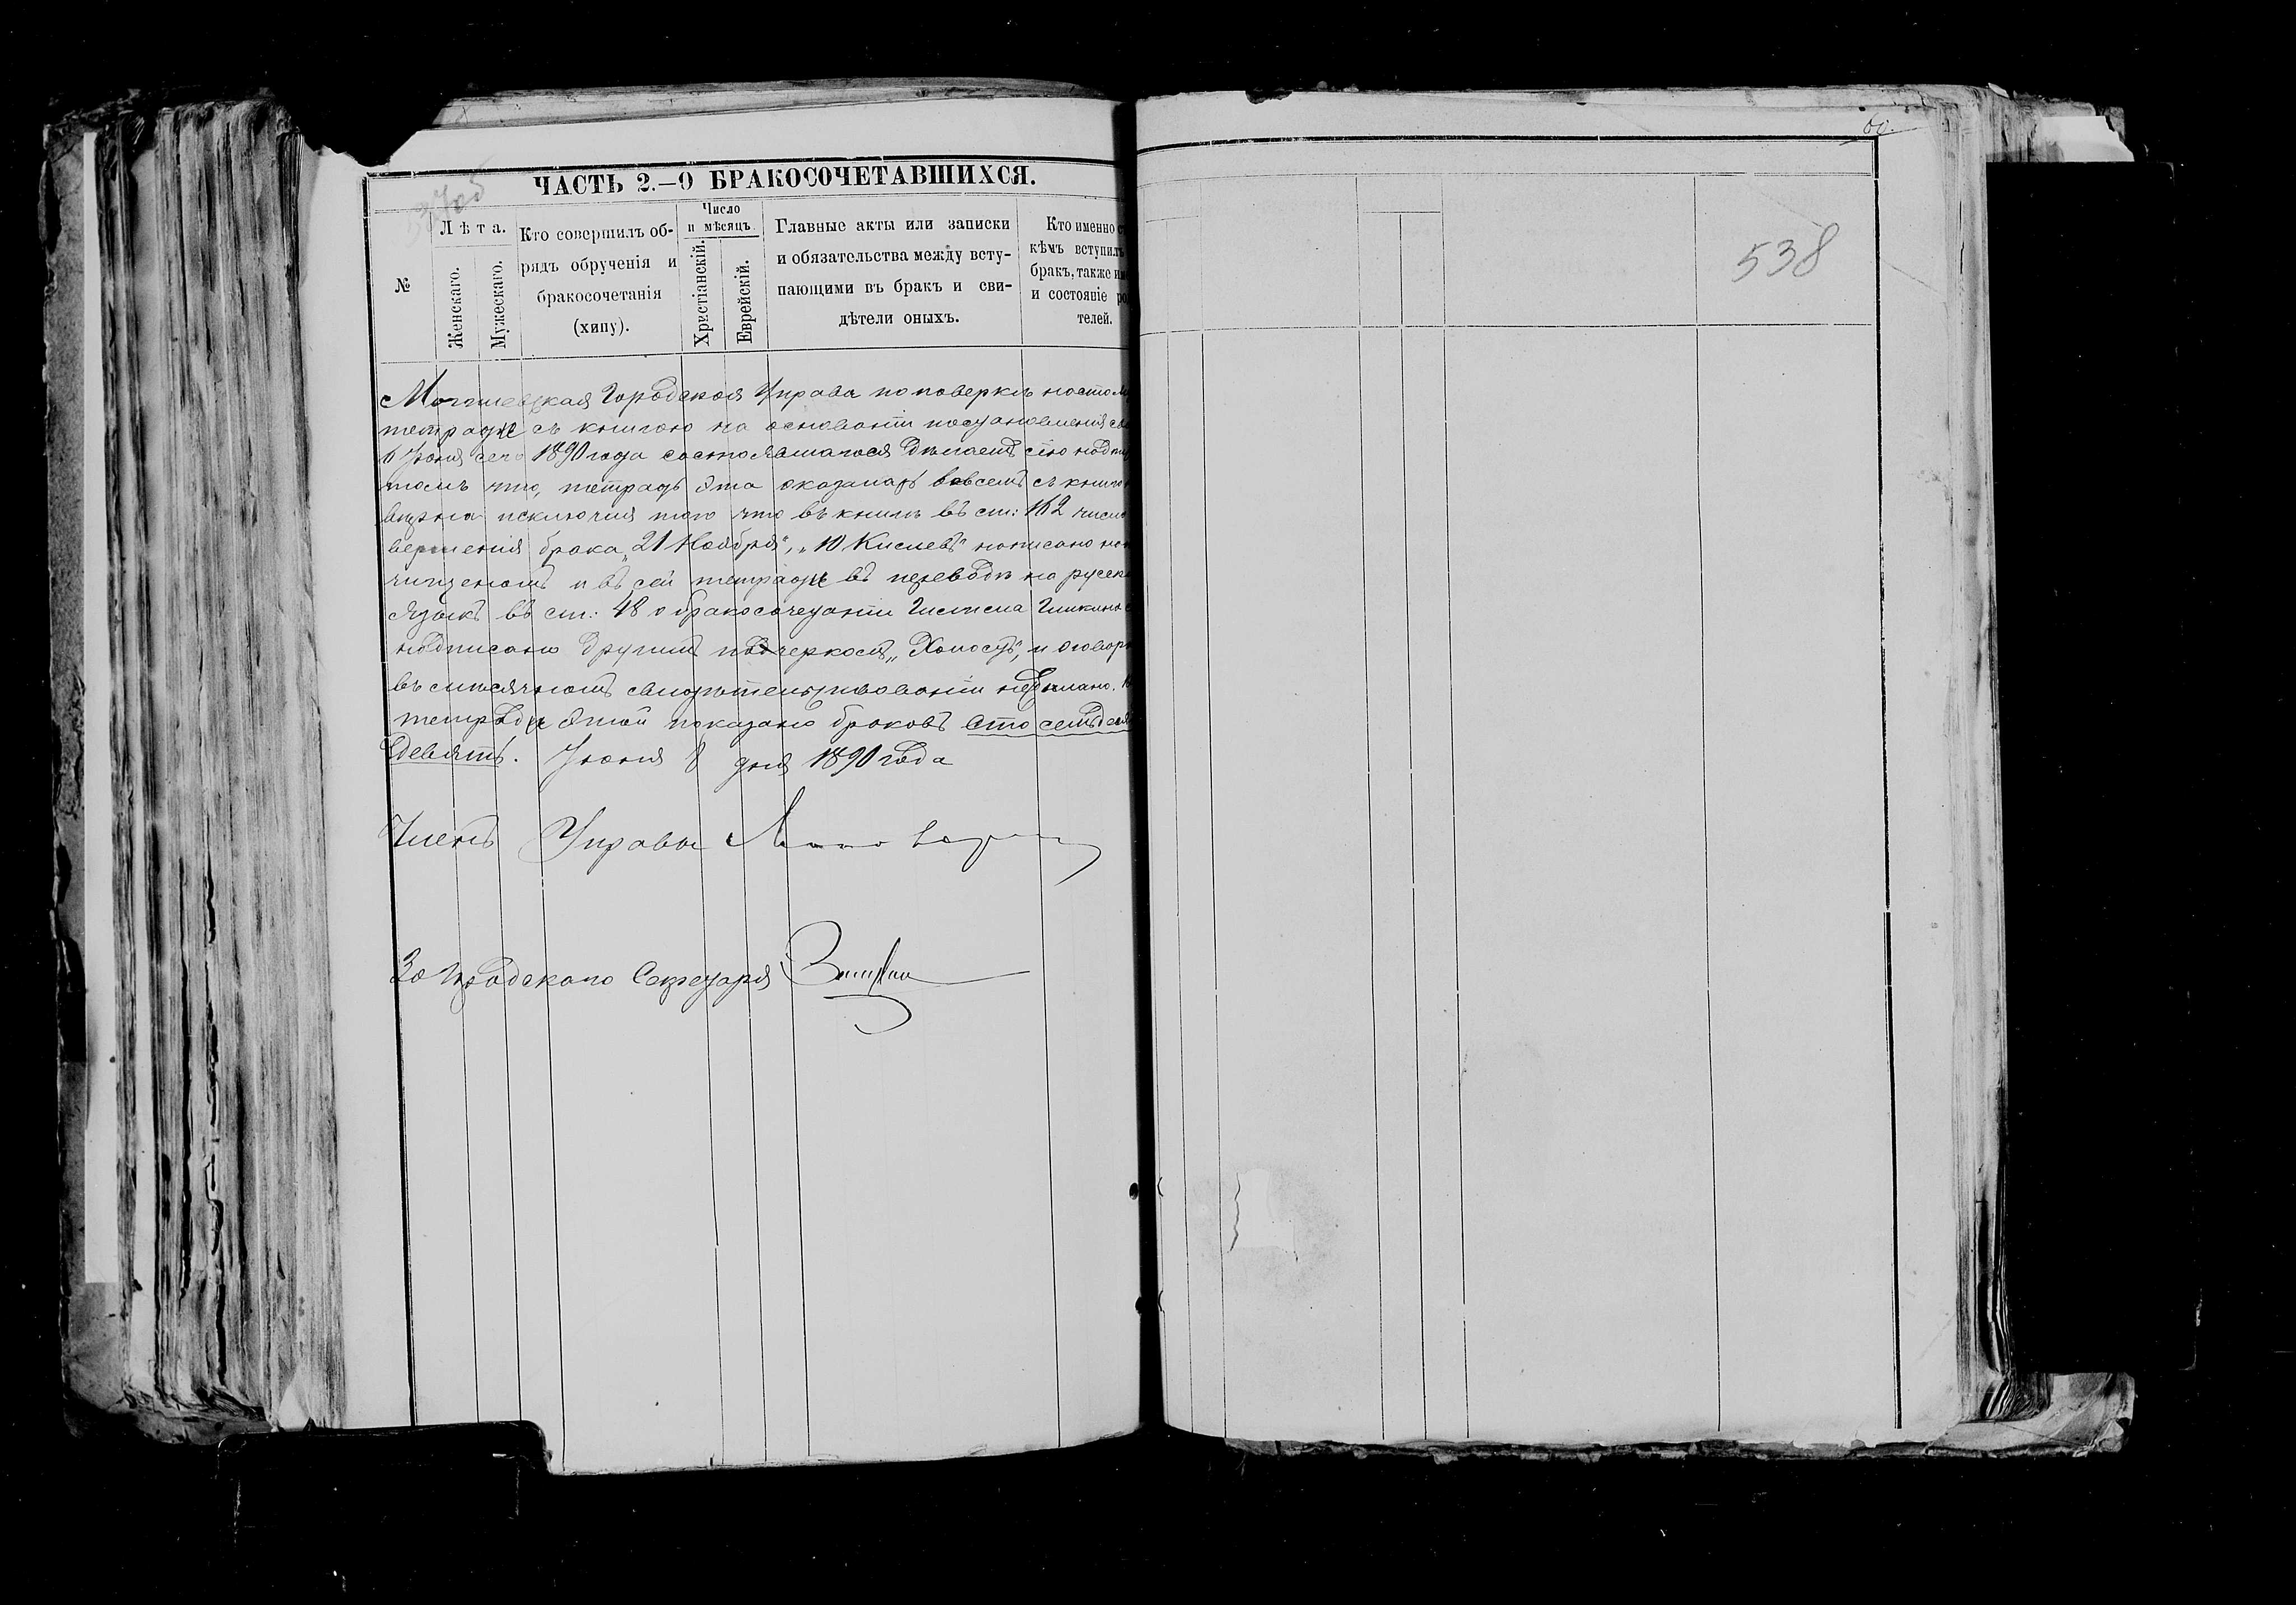 ЧАСТЬ 2.—О БРАКОСОЧЕТАВШИХСЯ.
№
Лѣта.
Женскаго.
Мужескаго.
Кто совершилъ об-
рядъ обрученія и
бракосочетанія
(хипу).
Число
и мѣсяцъ.
Христіанскій.
Еврейскій.
Главные акты или записки
и обязательства между всту-
пающими въ бракъ и сви-
дѣтели оныхъ.
Кто именно
кѣмъ вступилъ
бракъ, также
и состояніе
телей.
Могилевская Городская Управа по поверкѣ
тетради съ книгою на основаніи постановленія
6 Іюня сего 1890 года состоявшагося дѣлаетъ сію
томъ что, тетрадь эта оказалась вовсемъ съ
вѣрна исключая того что въ книгѣ въ ст: 162
вершенія брака „21 Ноября", „10 Кислевъ" написано
и въ сей тетради въ переводѣ на
языкъ въ ст: 48 о бракосочетаніи
надписано другимъ почеркомъ „Холостъ", и
въ свидѣтельствованіи не сдѣлано.
тетради этой показано браковъ сто
девять. Іюня 8 дня 1890 года
Членъ Управы
За Городскаго Секретаря
60.
538